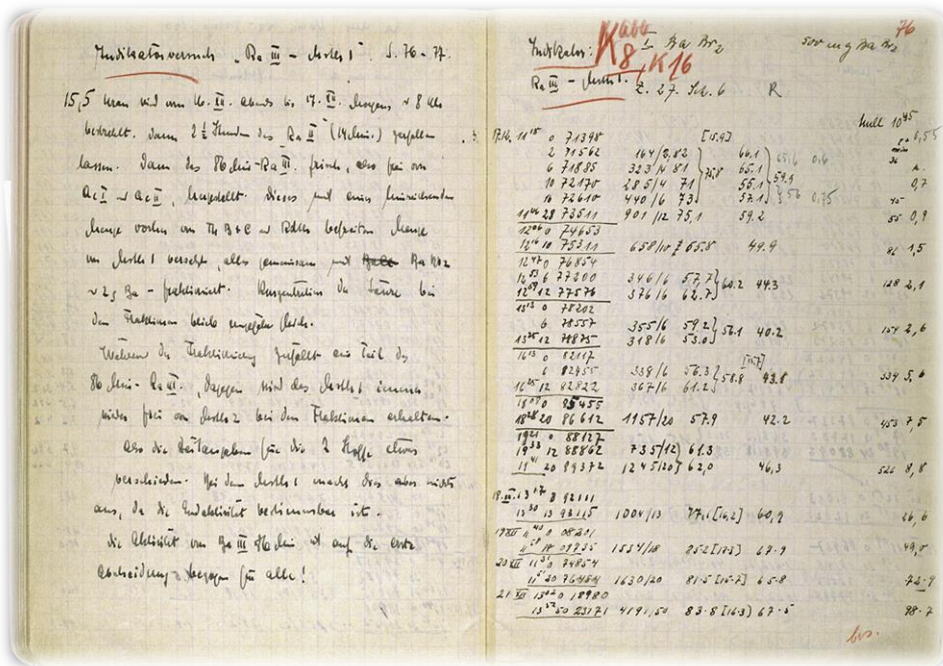 Indikatorversuch „Ra III – Msth 1". S. 76 – 77.
15,5 Uran wird vom 16. XII. abends bis 17. XII. morgens ~ 8 Uhr
bestrahlt. Dann 2 ½ Stunden das Ra II (14 Min.) zerfallen
lassen. Dann das 86 Min-Ra III frisch, also frei von
Ac I u Ac II, hergestellt. Dieses mit einer hinreichenden
Menge vorher von Th B+C befreiten Menge
von Msth 1 versetzt, alles gemeinsam mit Ba Br2
~ 2 g Ba – fraktioniert. Konzentration der Säure bei
den Fraktionen
Während der Fraktionierung zerfällt ein Teil des
86 Min – Ra III, dagegen wird das Msth 1 immer
wieder frei von Msth 2 bei den Fraktionen erhalten.
Also die Zeitangaben für die 2 Stoffe etwas
verschieden. Bei dem Msth 1 macht dies aber nichts
aus, da die Endaktivität bestimmbar ist.
Die Aktivität von Ra III 86 Min ist auf die erste
Abscheidung bezogen für alle!
76
Indikator: K8, K16 Ba Br2 500 mg Ba Br2
Ra III – Msth 1. Z. 27. Sch. 6 R
Null 10 45
17.12. 11 18 0 71398 [15.9]
2 71562 164/2 82 66.1
6 71885 323/4 81 75,8 65.1 59.4
10 72170 285/4 71 55.1 0,7
16 72610 440/6 73 57.1 0,75
11 46 28 73511 901/12 75,1 59.2 55 0,9
12 06 0 74653
12 16 10 75311 658/10 65.8 49.9 1,5
12 47 0 76854
12 53 6 77200 346/6 57,7 60.2 44.3 128 2,1
12 59 12 77576 376/6 62.7
13 13 0 78202
6 78557 355/6 59.2 56.1 40.2 154 2,6
13 25 12 78875 318/6 53.0
16 13 0 82117 [15.7]
6 82455 338/6 56.3 58.8 43.8 334 5,6
16 25 12 82822 367/6 61.2
18 08 0 85455
18 28 20 86612 1157/20 57.9 42.2 453 7,5
19 21 0 88127
19 33 12 88862 735/12 61.3
19 41 20 89372 1245/20 62,0 46,3 8,8
18.XII. 13 17 0 92111
13 30 13 93115 1004/13 77.1 [16,2] 60,9 26,6
19 XII 11 40 0 08201
11 58 18 09735 1534/18 85.2 [17.3] 67.9 49,0
20 XII 11 31 0 74854
11 51 20 76484 1630/20 81.5 [15.7] 65.8 72.9
21 XII 13 02 0 18980
13 52 50 23171 4191/50 83.8 [16.3] 67.5 98.7